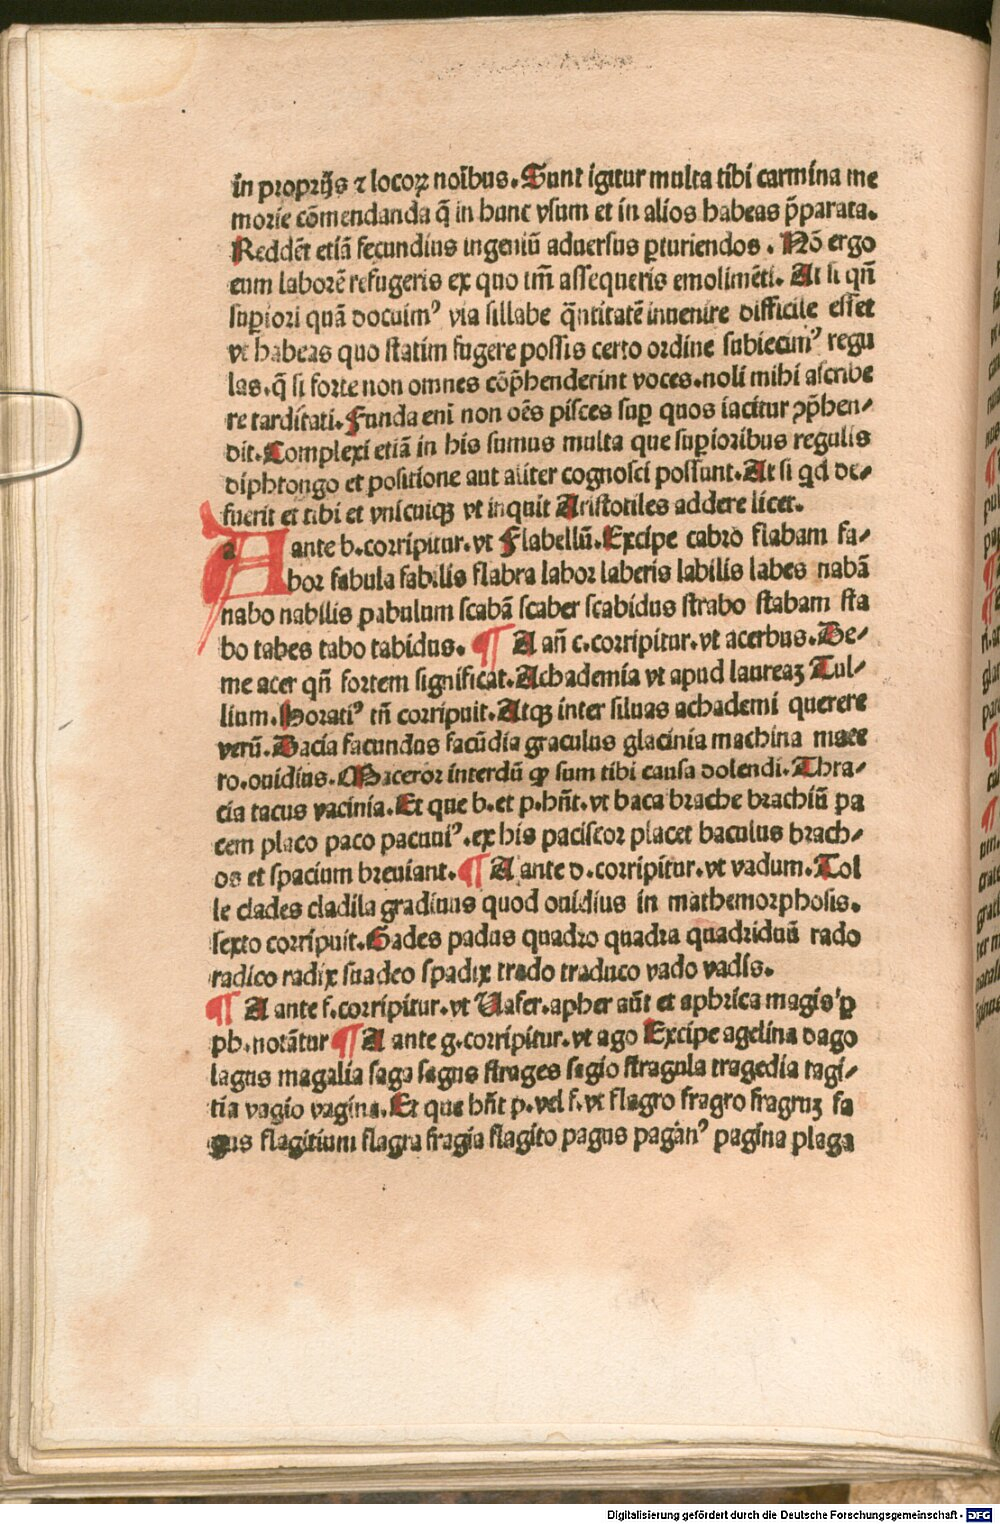 in proprijs ⁊ locoꝝ noībus. Sunt igitur multa tibi carmina me
morie cōmendanda q̄ in hunc vsum et in alios habeas p̄parata.
Reddēt etiā fecundius ingeniū aduersus ꝑturiendos. Nō ergo
eum laborē refugeris ex quo tm̄ assequeris emolimēti. At si qn̄
superiori quā docuimꝰ via sillabe q̄ntitatē inuenire difficile esset
vt habeas quo statim fugere possis certo ordine subiecimꝰ regu
las. q̄ si forte non omnes cōp̄henderint voces. noli mihi ascribe
re tarditati. Funda enī non oēs pisces suꝑ quos iacitur ꝯp̄hen⸗
dit. Complexi etiā in his sumus multa que suꝑioribus regulis
diphtongo et positione aut aliter cognosci possunt. At si qd de⸗
fuerit et tibi et vnicuiqꝫ vt inquit Aristotiles addere licet.
A ante b. corripitur. vt Flabellū. Excipe cabro flabam fa⸗
bor fabula fabilis flabra labor laberis labilis labes nabā
nabo nabilis pabulum scabā scaber scabidus strabo stabam sta
bo tabes tabo tabidus. ¶ A an̄ c. corripitur. vt acerbus. De⸗
me acer qn̄ fortem significat. Achademia vt apud laureaꝫ Tul⸗
lium. Horatiꝰ tn̄ corripuit. Atqꝫ inter siluas achademi querere
verū. Dacia facundus facūdia graculus glacinia machina mace
ro. ouidius. Maceror interdū ꝙ sum tibi causa dolendi. Thra⸗
cia tacus vacinia. Et que b. et p. hn̄t. vt baca brache brachiū pa
cem placo paco pacuuiꝰ. ex his paciscor placet baculus brach⸗
os et spacium breuiant. ¶ A ante d. corripitur. vt vadum. Tol
le clades cladila gradiuus quod ouidius in mathemorphosis.
sexto corripuit. Gades padus quadro quadra quadriduū rado
radico radix suadeo spadix trado traduco vado vadis.
¶ A ante f. corripitur. vt Vafer. apher aūt et aphrica magis ꝑ
ph. notātur ¶ A ante g. corripitur. vt ago Excipe agelina dago
lagus magalia saga sagus strages sagio stragula tragedia tagi⸗
tia vagio vagina. Et que hn̄t p. vel f. vt flagro fragro fragruꝫ fa
gus flagitium flagra fragia flagito pagus paganꝰ pagina plaga
Digitalisierung gefördert durch die Deutsche Forschungsgemeinschaft - DFG